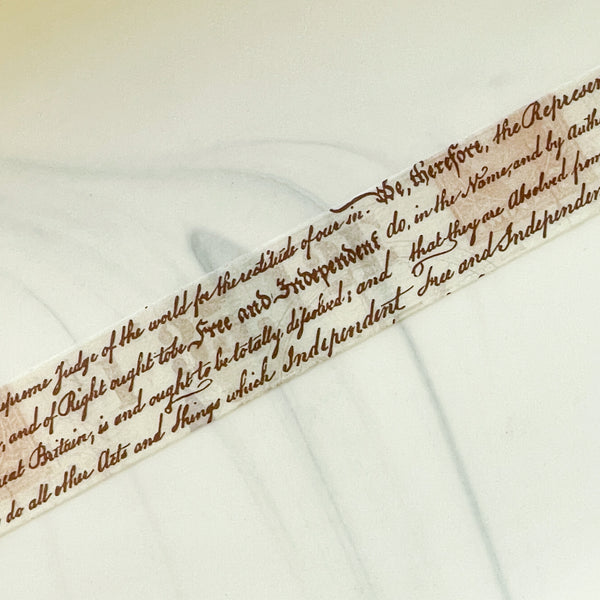 upreme Judge of the world for the rectitude of our in. We, therefore, the Represen
, and of Right ought tobe Free and Independent do, in the Name, and by Auth
reat Britain, is and ought to be totally dissolved; and that they are Absolved from
do all other Acts and Things which Independent Free and Independen